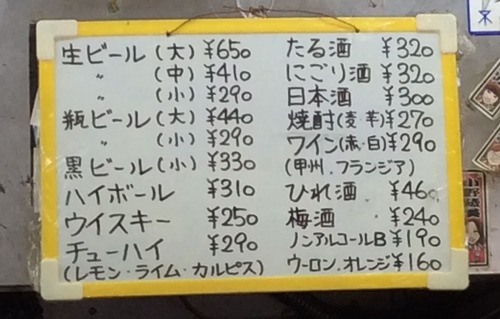 生ビール(大) ¥650
〃 (中) ¥410
〃 (小) ¥290
瓶ビール(大) ¥440
〃 (小) ¥290
黒ビール(小) ¥330
ハイボール ¥310
ウイスキー ¥250
チューハイ ¥290
(レモン・ライム・カルピス)
たる酒 ¥320
にごり酒 ¥320
日本酒 ¥300
焼酎(麦・芋) ¥270
ワイン(赤・白) ¥290
(甲州.フランジア)
ひれ酒 ¥460
梅酒 ¥240
ノンアルコールB ¥190
ウーロン.オレンジ ¥160